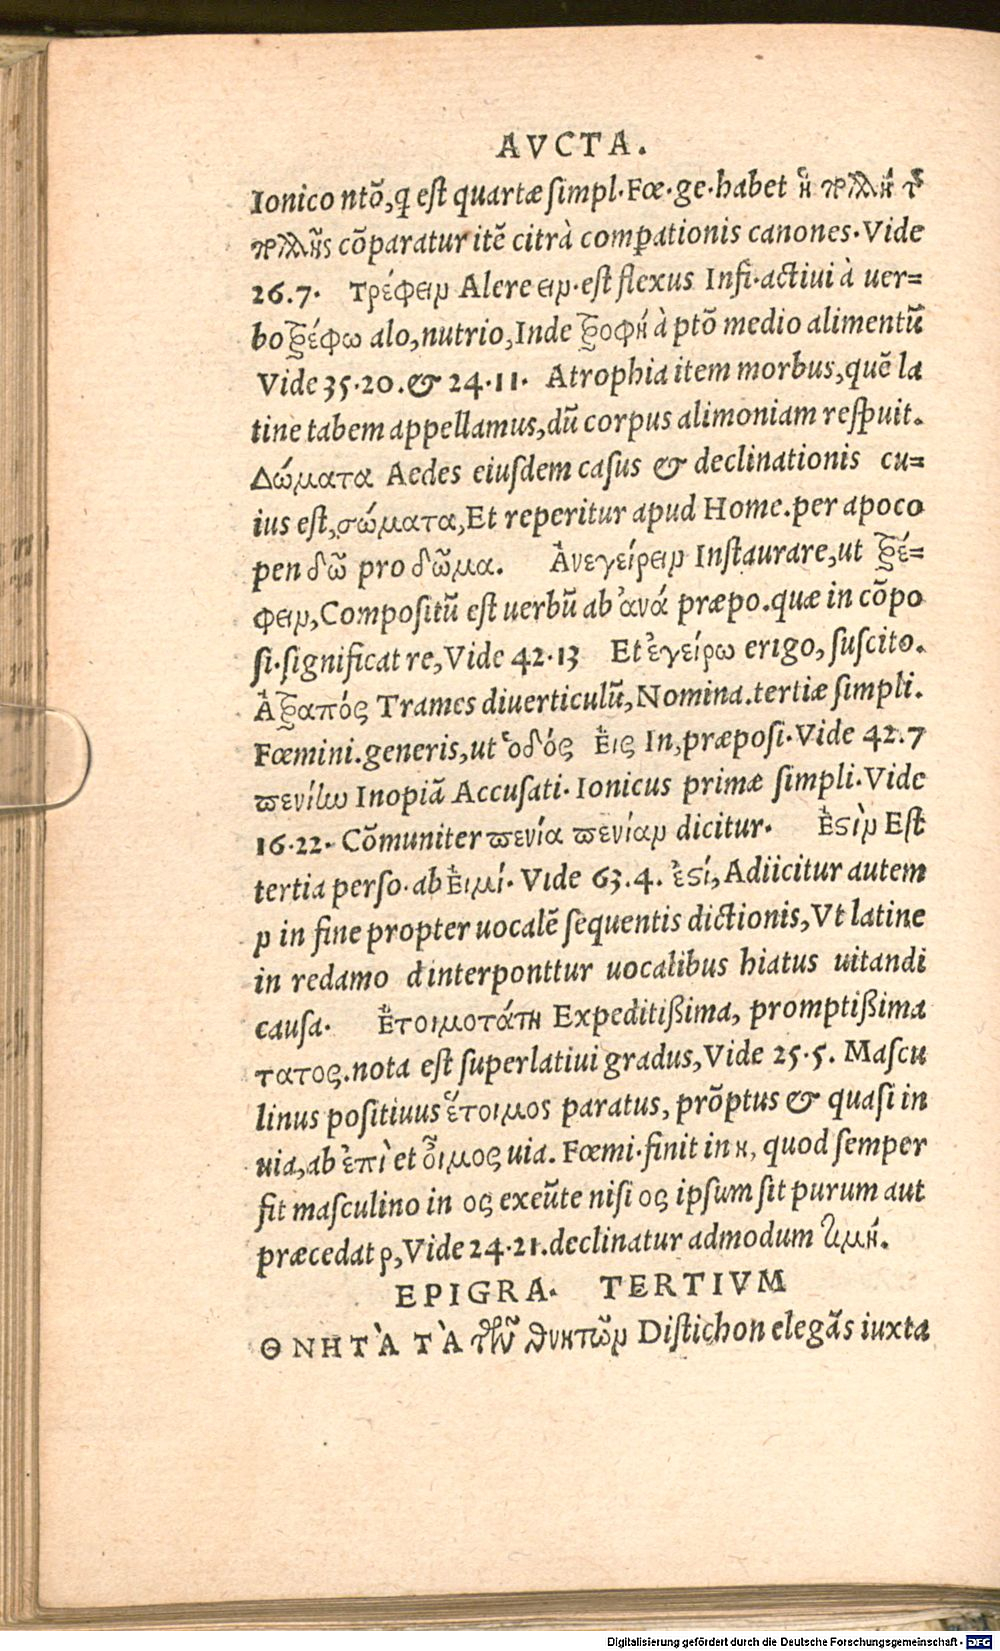 AVCTA.
Ionico ntõ, ꝗ est quartæ simpl. Fœ. ge. habet ἡ πολλὴ τ͂
πολλῆς cõparatur itẽ citrà comꝑationis canones. Vide
26.7. Τρέφειν Alere ειν. est flexus Infi. actiui à uer=
bo τρέφω alo, nutrio, Inde τροφή à ptõ medio alimentũ
Vide 35.20. & 24.11. Atrophia item morbus, quẽ la
tine tabem appellamus, dũ corpus alimoniam respuit.
Δώματα Aedes eiusdem casus & declinationis cu=
ius est, σώματα, Et reperitur apud Home. per apoco
pen δῶ pro δῶμα. Ἀνεγείρειν Instaurare, ut τρέ=
φειν, Compositũ est uerbũ ab ἀνά præpo. quæ in cõpo
si. significat re, Vide 42.13 Et ἐγείρω erigo, suscito.
Ἀτραπός Trames diuerticulũ, Nomina. tertiæ simpli.
Fœmini. generis, ut ὁδός Ἐις In, præposi. Vide 42.7
πενίην Inopiã Accusati. Ionicus primæ simpli. Vide
16.22. Cõmuniter πενία πενίαν dicitur. Ἐστὶν Est
tertia perso. ab Ἐιμί. Vide 63.4. ἐστί, Adiicitur autem
ν in fine propter uocalẽ sequentis dictionis, Vt latine
in redamo d interponttur uocalibus hiatus uitandi
causa. Ἑτοιμοτάτη Expeditißima, promptißima
τατος. nota est superlatiui gradus, Vide 25.5. Mascu
linus positiuus ἕτοιμος paratus, prõptus & quasi in
uia, ab ἐπὶ et οἶμος uia. Fœmi. finit in η, quod semper
fit masculino in ος exeũte nisi ος ipsum sit purum aut
præcedat ρ, Vide 24.21. declinatur admodum τιμή.
EPIGRA. TERTIVM
ΘΝΗΤᾺ ΤᾺ τῶν θνητῶν Distichon elegãs iuxta
Digitalisierung gefördert durch die Deutsche Forschungsgemeinschaft - DFG